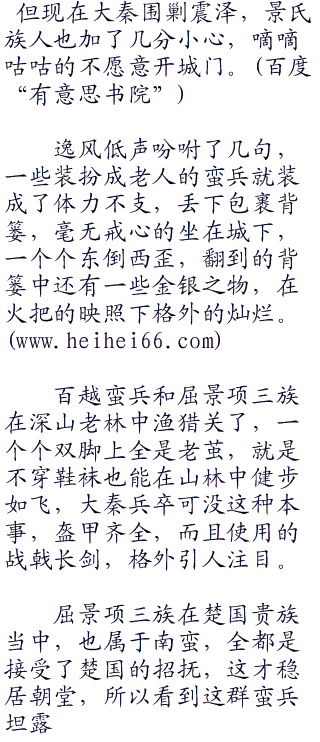 但现在大秦围剿震泽，景氏
族人也加了几分小心，嘀嘀
咕咕的不愿意开城门。(百度
“有意思书院”)
逸风低声吩咐了几句，
一些装扮成老人的蛮兵就装
成了体力不支，丢下包裹背
篓，毫无戒心的坐在城下，
一个个东倒西歪，翻到的背
篓中还有一些金银之物，在
火把的映照下格外的灿烂。
(www.heihei66.com)
百越蛮兵和屈景项三族
在深山老林中渔猎关了，一
个个双脚上全是老茧，就是
不穿鞋袜也能在山林中健步
如飞，大秦兵卒可没这种本
事，盔甲齐全，而且使用的
战戟长剑，格外引人注目。
屈景项三族在楚国贵族
当中，也属于南蛮，全都是
接受了楚国的招抚，这才稳
居朝堂，所以看到这群蛮兵
坦露